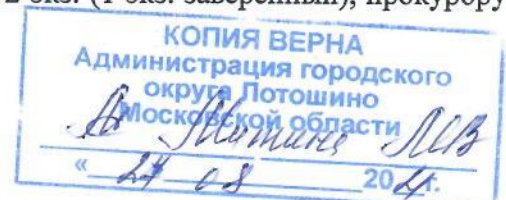 2 экз. (1 экз. заверенный), прокурору
КОПИЯ ВЕРНА
Администрация городского
округа Лотошино
Московской области
« 27 08 20 г.